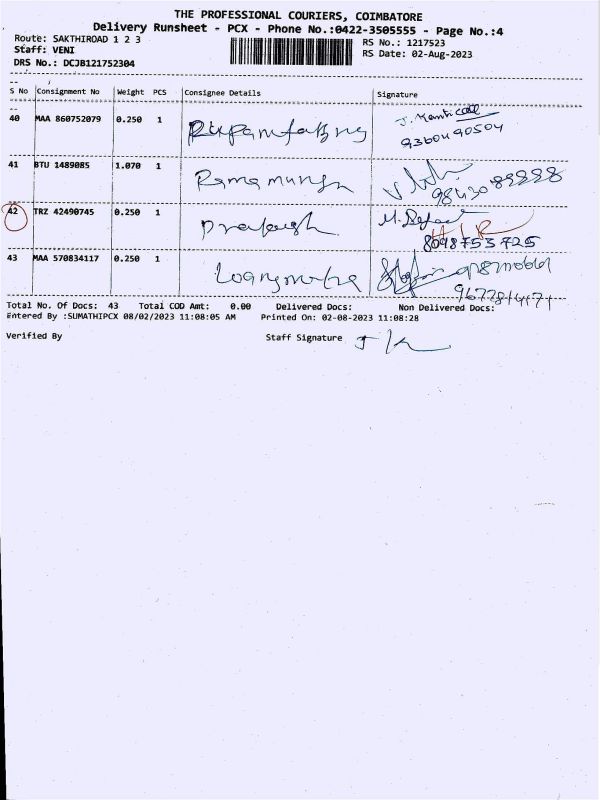 THE PROFESSIONAL COURIERS, COIMBATORE
Delivery Runsheet - PCX - Phone No.:0422-3505555 - Page No.:4
Route: SAKTHIROAD 1 2 3
RS No.: 1217523
Staff: VENI
RS Date: 02-Aug-2023
DRS No.: DCJB121752304
S No Consignment No Weight PCS Consignee Details Signature
40 MAA 860752079 0.250 1
9360490504
41 BTU 1489085 1.070 1
42 TRZ 42490745 0.250 1 Prakash
8098753725
43 MAA 570834117 0.250 1
Total No. Of Docs: 43 Total COD Amt: 0.00 Delivered Docs: Non Delivered Docs:
Entered By :SUMATHIPCX 08/02/2023 11:08:05 AM Printed On: 02-08-2023 11:08:28
Verified By Staff Signature